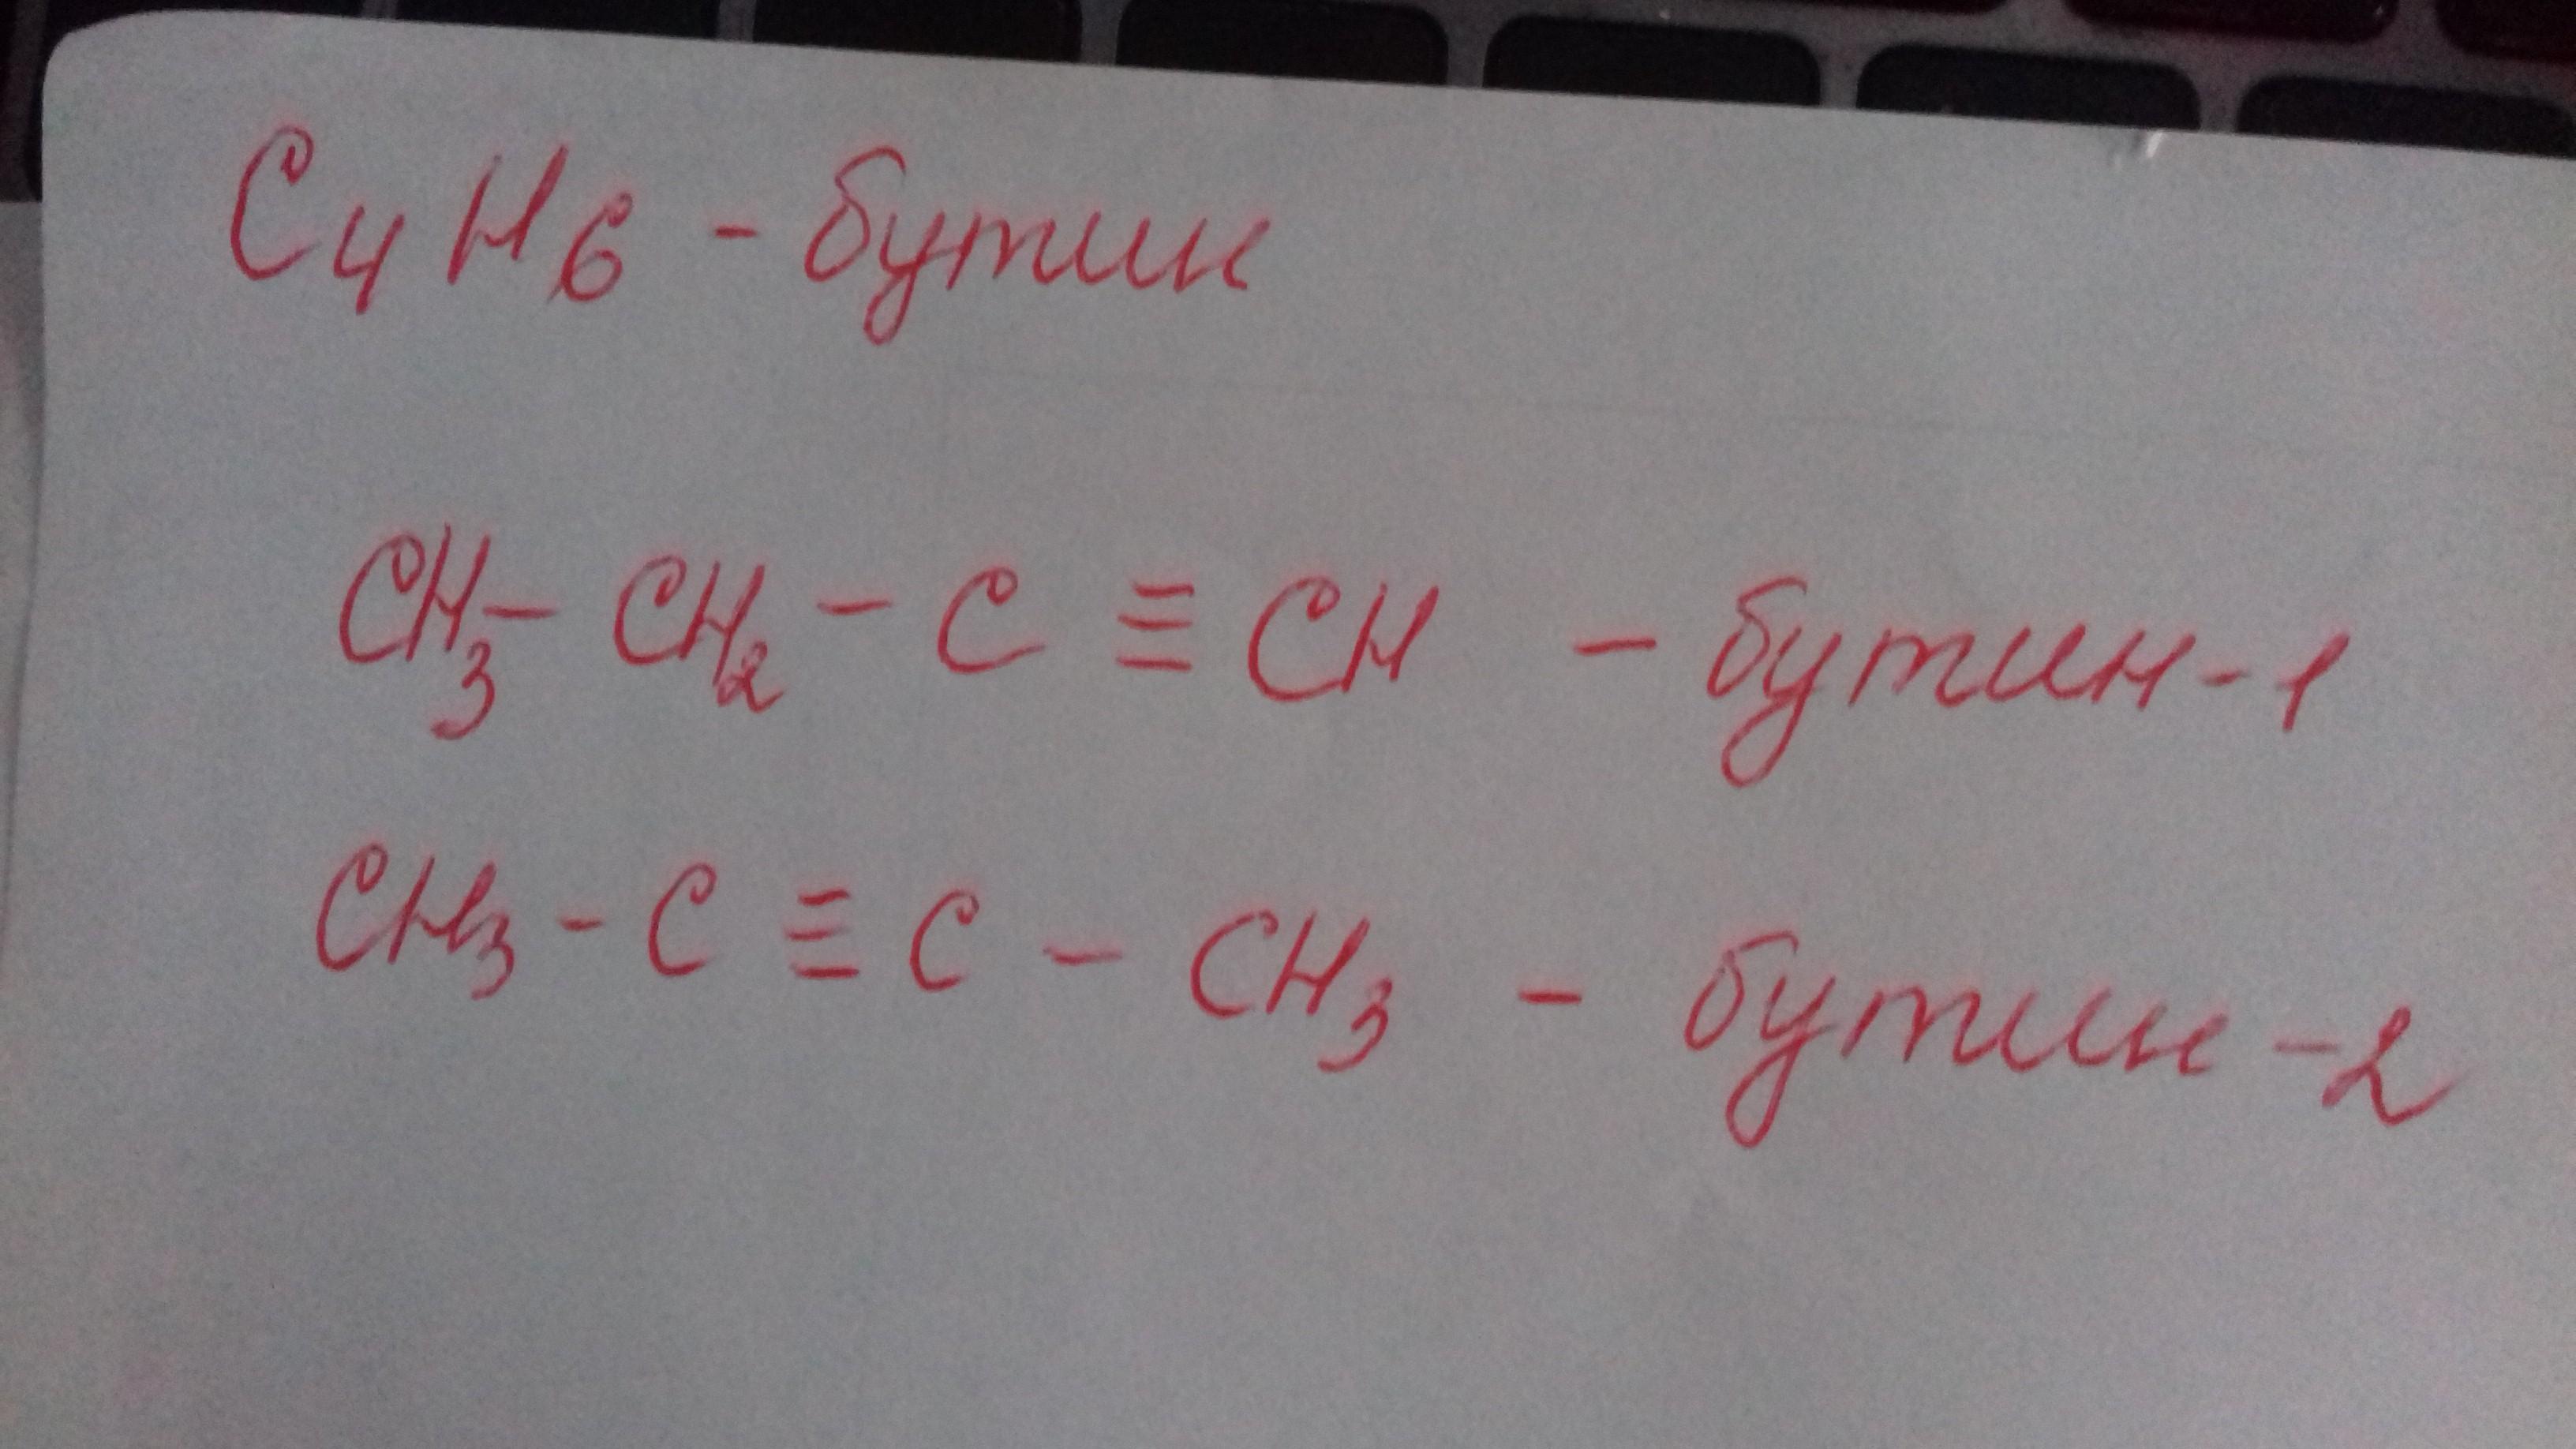 C₄H₆ - бутин
CH₃ - CH₂ - C ≡ CH - бутин-1
CH₃ - C ≡ C - CH₃ - бутин-2